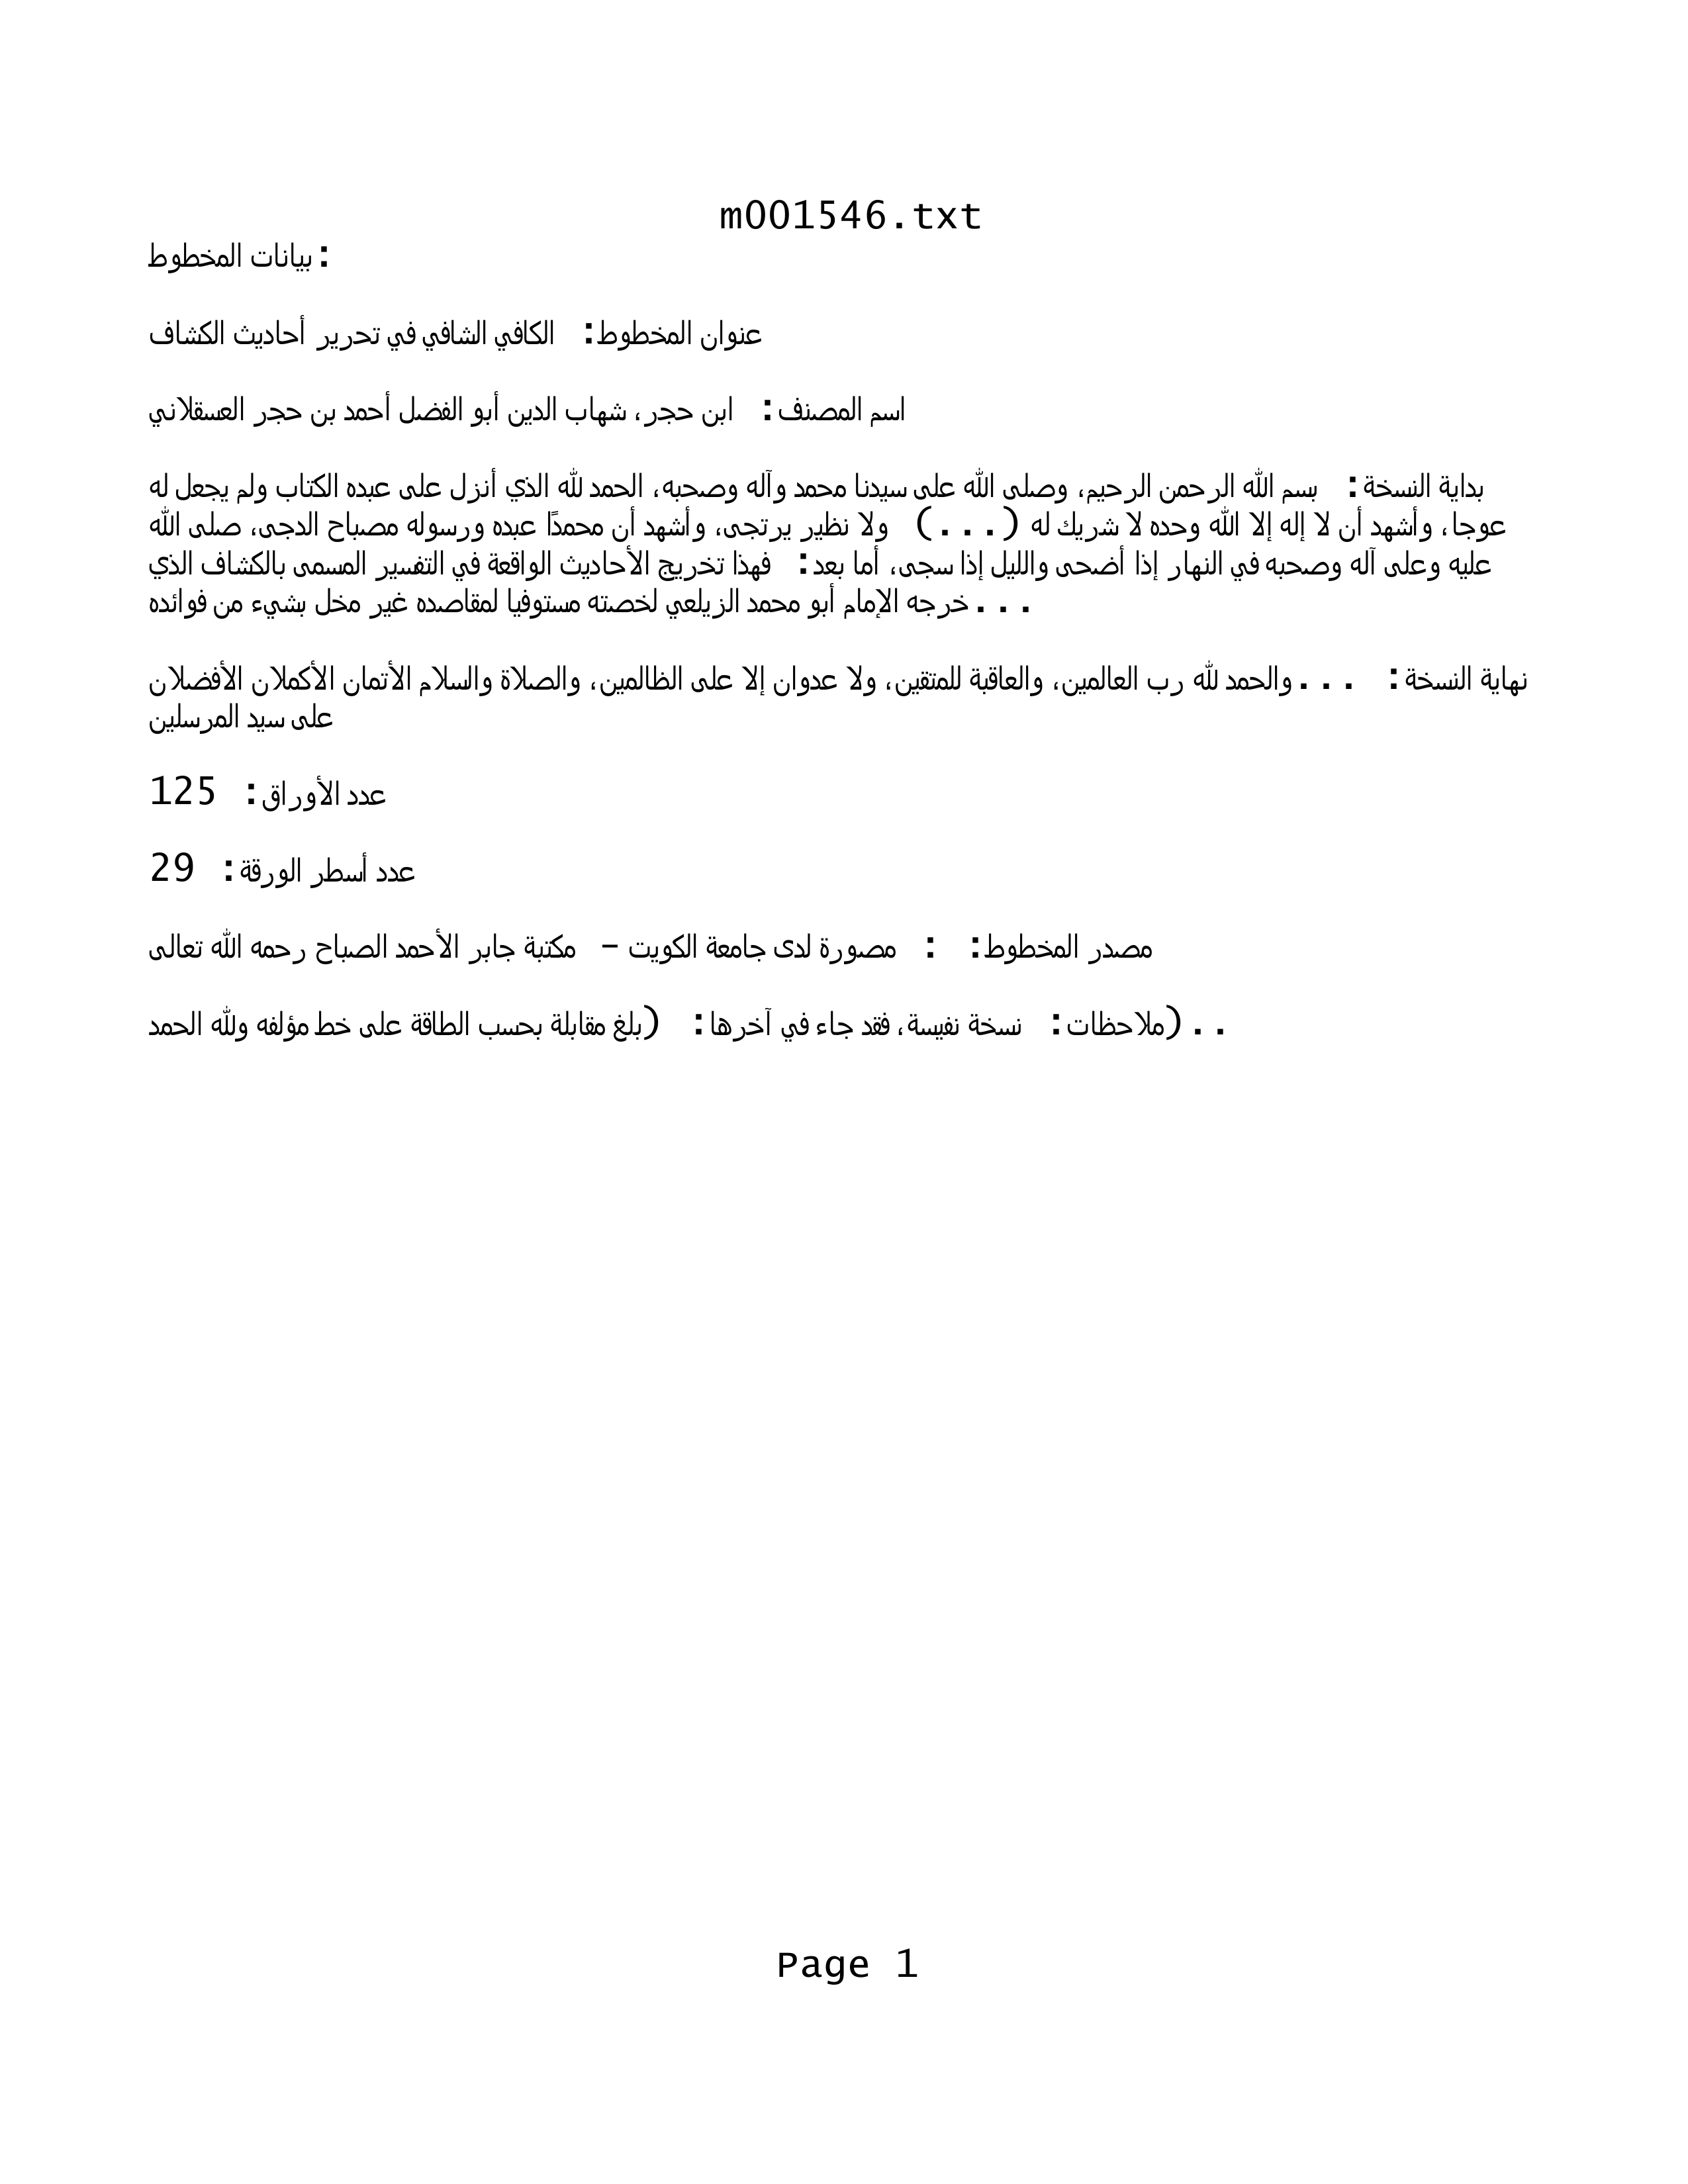 m001546.txt
بيانات المخطوط:
عنوان المخطوط: الكافي الشافي في تحرير أحاديث الكشاف
اسم المصنف: ابن حجر، شهاب الدين أبو الفضل أحمد بن حجر العسقلاني
بداية النسخة: بسم الله الرحمن الرحيم، وصلى الله على سيدنا محمد وآله وصحبه، الحمد لله الذي أنزل على عبده الكتاب ولم يجعل له
عوجا، وأشهد أن لا إله إلا الله وحده لا شريك له (...) ولا نظير يرتجى، وأشهد أن محمدًا عبده ورسوله مصباح الدجى، صلى الله
عليه وعلى آله وصحبه في النهار إذا أضحى والليل إذا سجى، أما بعد: فهذا تخريج الأحاديث الواقعة في التفسير المسمى بالكشاف الذي
خرجه الإمام أبو محمد الزيلعي لخصته مستوفيا لمقاصده غير مخل بشيء من فوائده...
نهاية النسخة: ...والحمد لله رب العالمين، والعاقبة للمتقين، ولا عدوان إلا على الظالمين، والصلاة والسلام الأتمان الأكملان الأفضلان
على سيد المرسلين
عدد الأوراق: 125
عدد أسطر الورقة: 29
مصدر المخطوط: : مصورة لدى جامعة الكويت - مكتبة جابر الأحمد الصباح رحمه الله تعالى
ملاحظات: نسخة نفيسة، فقد جاء في آخرها: (بلغ مقابلة بحسب الطاقة على خط مؤلفه ولله الحمد)..
Page 1